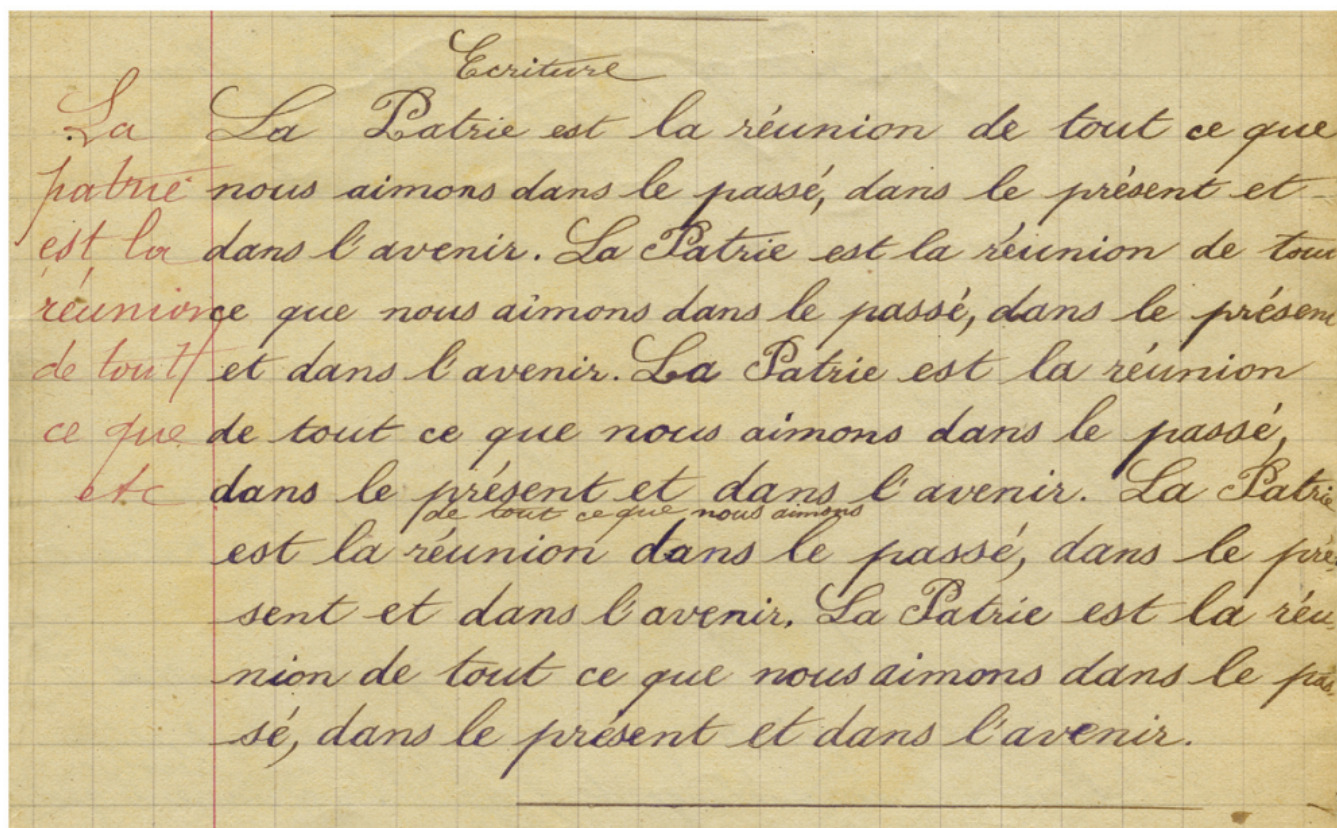 Ecriture
La
patrie
est la
réunion
de tout
ce que
etc
La Patrie est la réunion de tout ce que
nous aimons dans le passé, dans le présent et
dans l'avenir. La Patrie est la réunion de tout
ce que nous aimons dans le passé, dans le présent
et dans l'avenir. La Patrie est la réunion
de tout ce que nous aimons dans le passé,
dans le présent et dans l'avenir. La Patrie
de tout ce que nous aimons
est la réunion dans le passé, dans le pré-
sent et dans l'avenir. La Patrie est la réu-
nion de tout ce que nous aimons dans le pas-
sé, dans le présent et dans l'avenir.